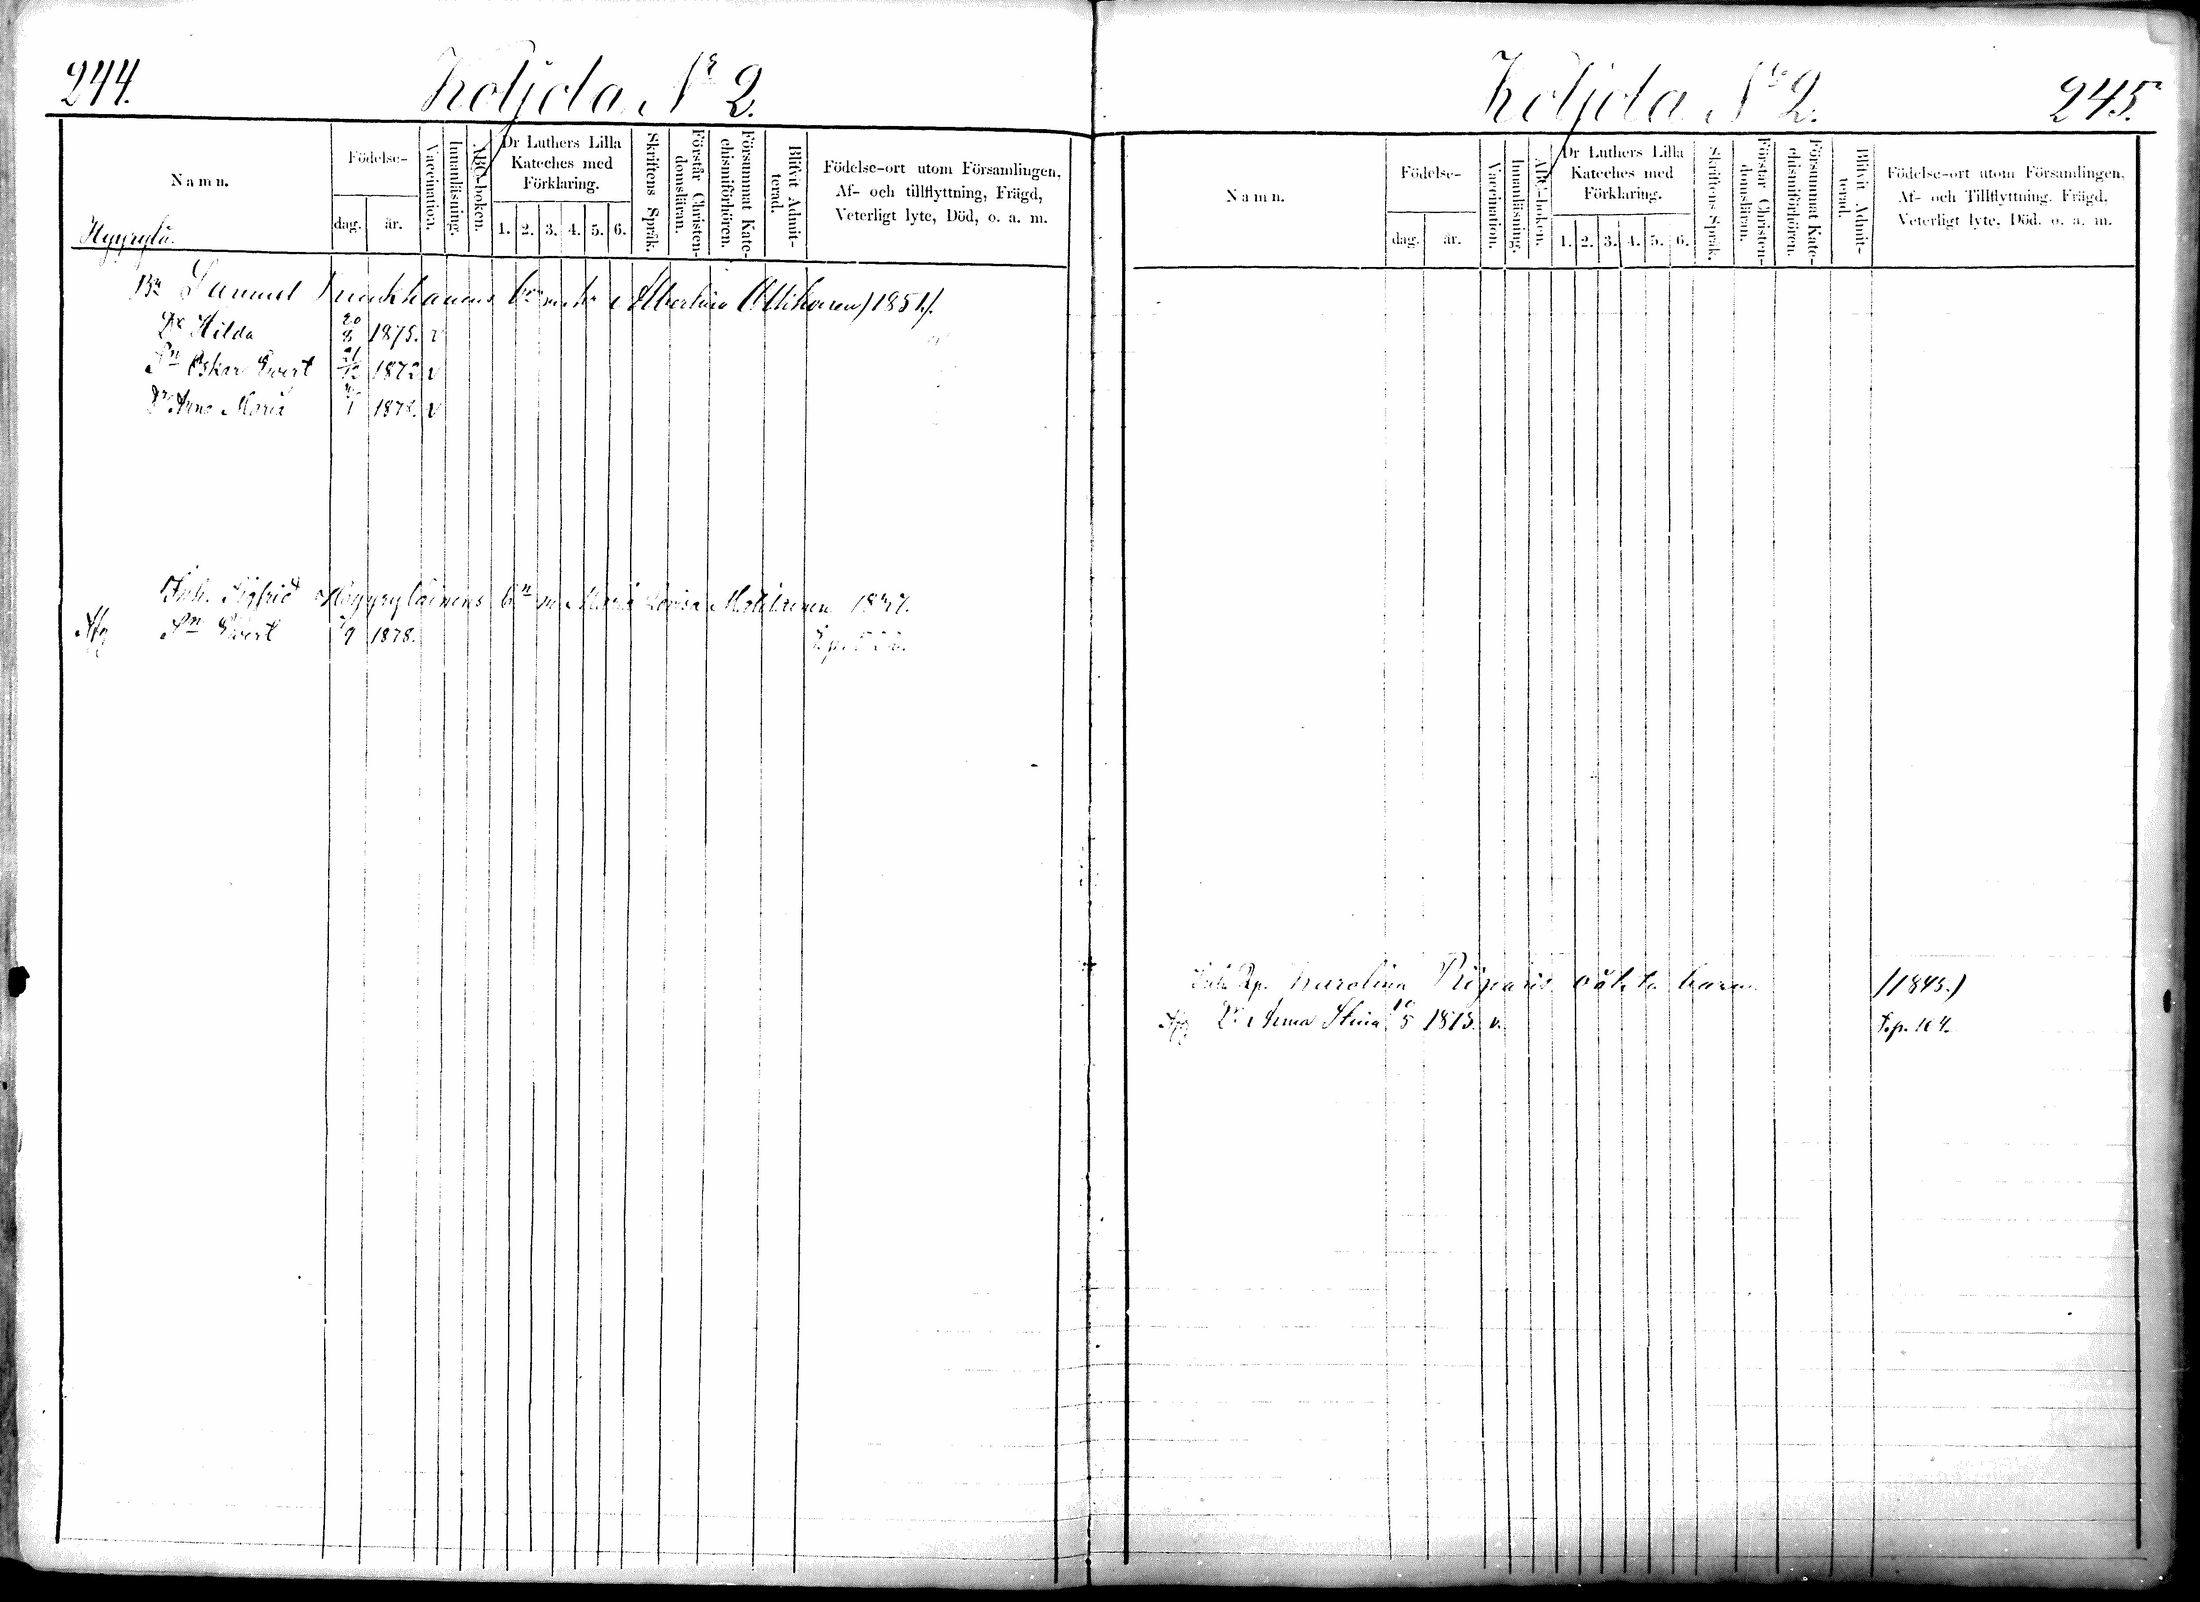 244.
Koljola N 2.
Namn.
Födelse-
dag.
år.
Vaccination.
Innanläsning.
ABC-boken.
Dr Luthers Lilla
Kateches med
Förklaring.
1. 2. 3. 4. 5. 6.
Skriftens Språk.
Förstår Christen-
domsläran.
Försummat Kate-
chismiförhören.
Blifvit Admit-
terad.
Födelse-ort utom Församlingen,
Af- och tillflyttning, Frägd,
Veterligt lyte, Död, o. a. m.
Hyyrylä.
Samuel Albertina 1851
Dr Hilda 20/8 1875. v
Sn Oskar Evert 21/12 1872 v
Dr Anna Maria 1 187 v
Inh. Sigfrid Hyyryläinens bn m. Maria Lovisa
Afg Sn Evert 9 1878.
Koljola No 2.
245.
Namn.
Födelse-
dag.
år.
Vaccination.
Innanläsning.
ABC-boken.
Dr Luthers Lilla
Kateches med
Förklaring.
1. 2. 3. 4. 5. 6.
Skriftens Språk.
Förstår Christen-
domsläran.
Försummat Kate-
chismiförhören.
Blifvit Admit-
terad.
Födelse-ort utom Församlingen,
Af- och Tillflyttning. Frägd,
Veterligt lyte, Död, o. a. m.
Karolina oäkta barn (1845.)
Afg Dr Anna Stina 5 1875. v. F.p. 104.